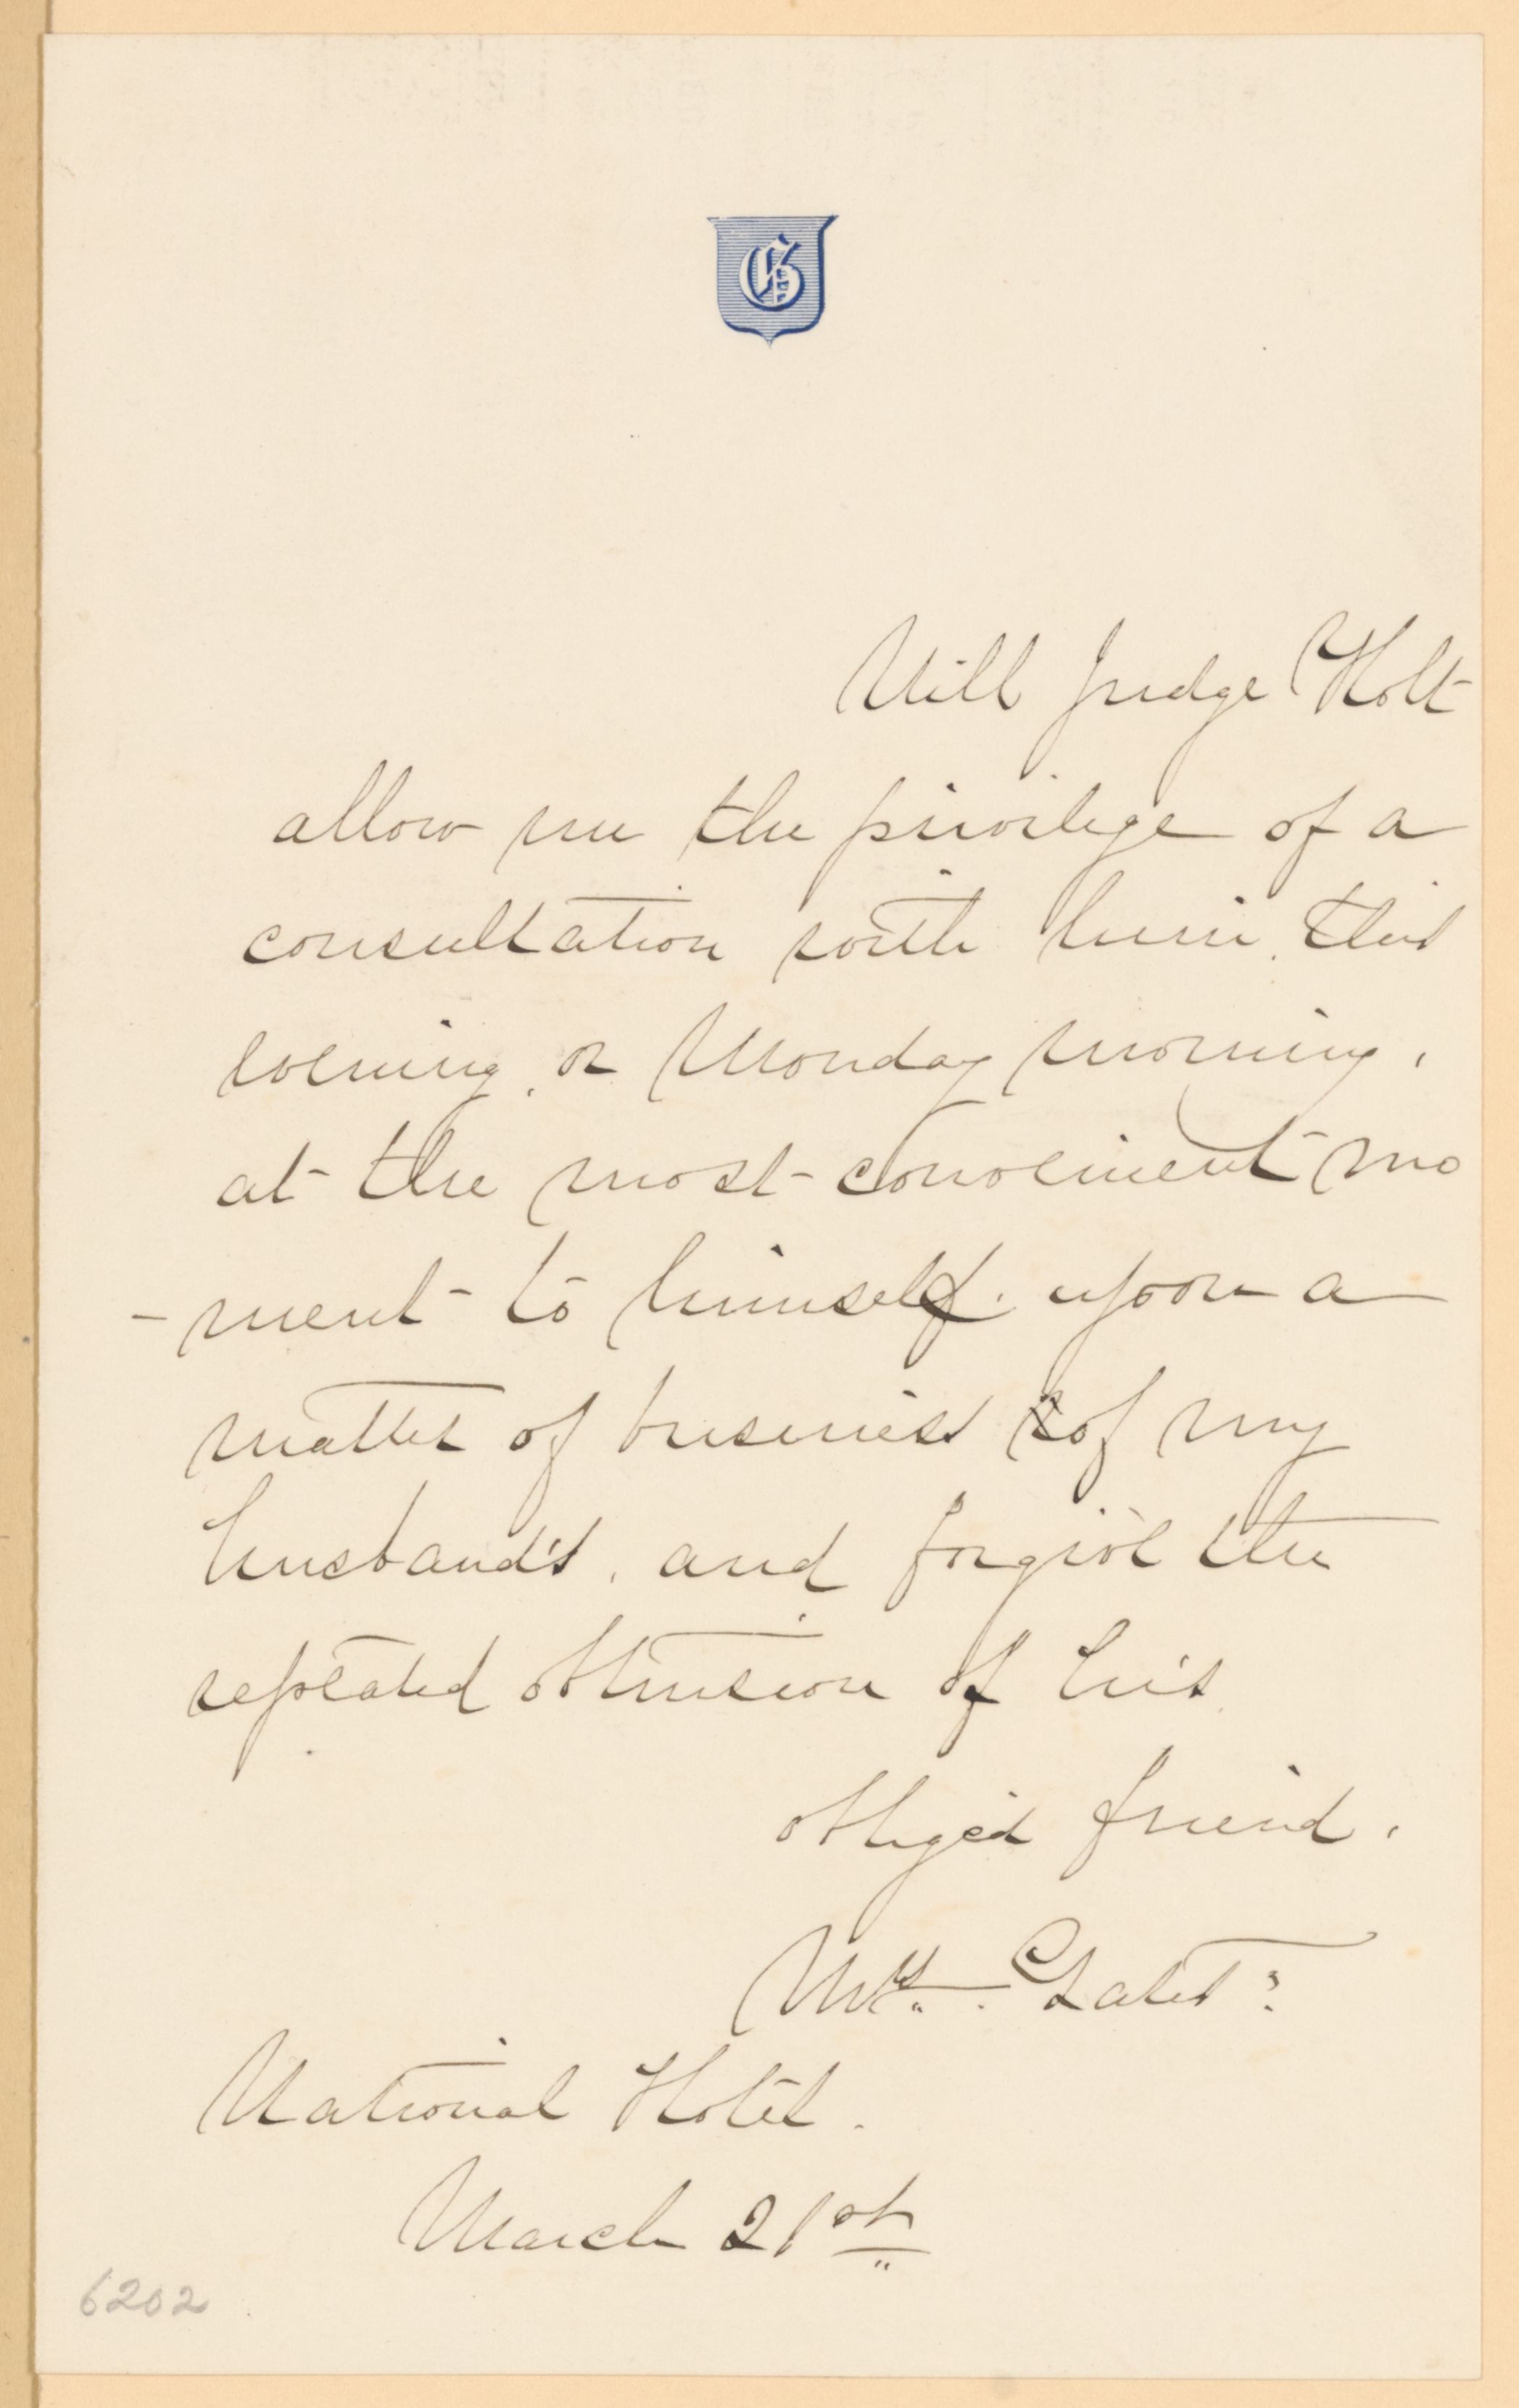 G
Will Judge Holt
allow me the privilege of a
consultation with him, this
evening, or Monday morning,
at the most convenient mo
-ment to himself. upon a
matter of business of my
husband's, and forgive the
repeated obtrusion of his
obliged friend,
Mrs. Gates.
National Hotel.
March 21st
6202